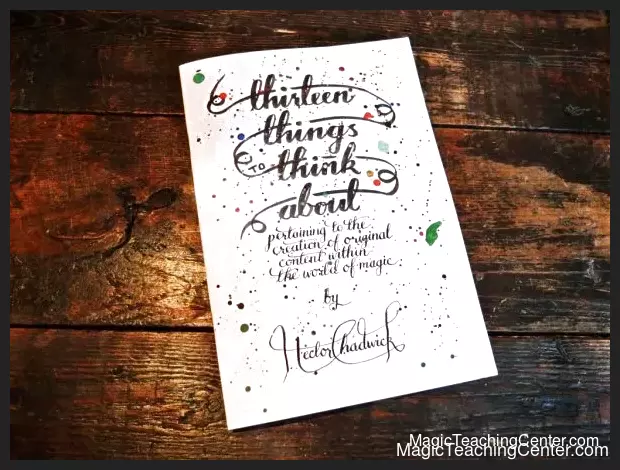 thirteen
things
TO think
about
pertaining to the
creation of original
content within
the world of magic.
by
Hector Chadwick
MagicTeachingCenter.com
MagicTeachingCenter.com